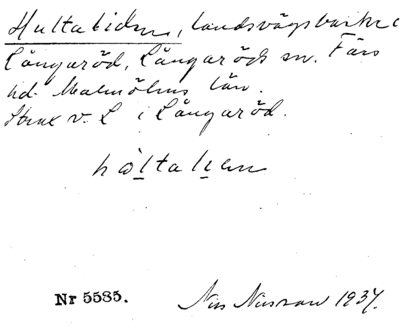 Hultabiden, landsvägsbacke
Långaröd, Långaröds sn. Färs
hd. Malmöhus län.
Strax v. L i Långaröd.
hòltalien
Nr 5585.
Nils Nilsson 1937.